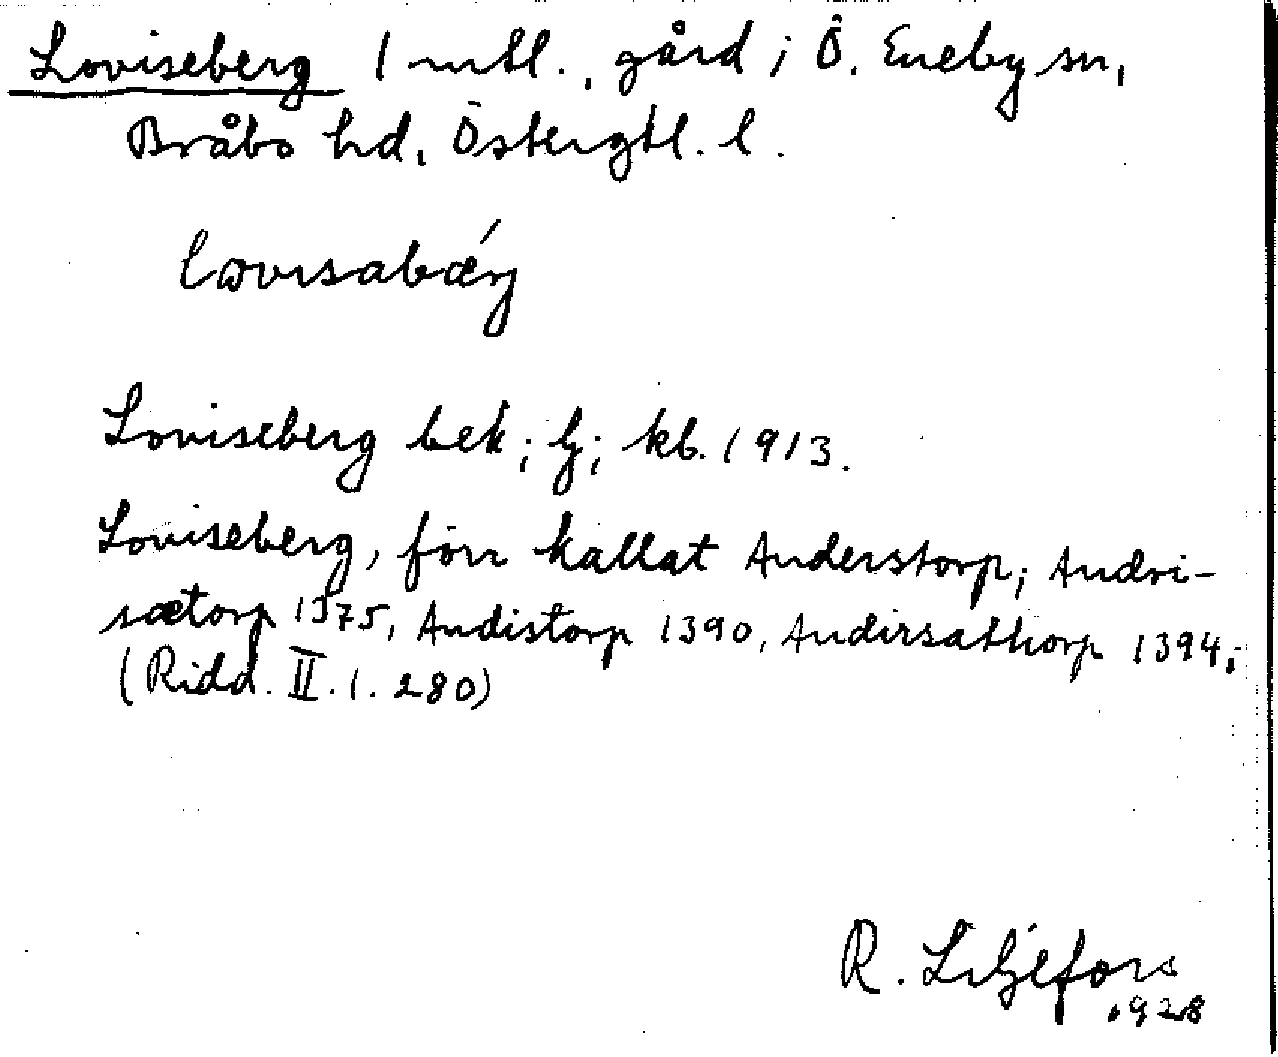 Loviseberg 1 mtl., gård i Ö. Eneby sn,
Bråbo hd, Östergtl. l.
lovisabæ´rj
Loviseberg bek; lj; kb. 1913.
Loviseberg, förr kallat Anderstorp; Andri-
sætorp 1375, Andistorp 1390, Andirsathorp 1394;
(Ridd. II. 1. 280)
R. Liljefors
1928